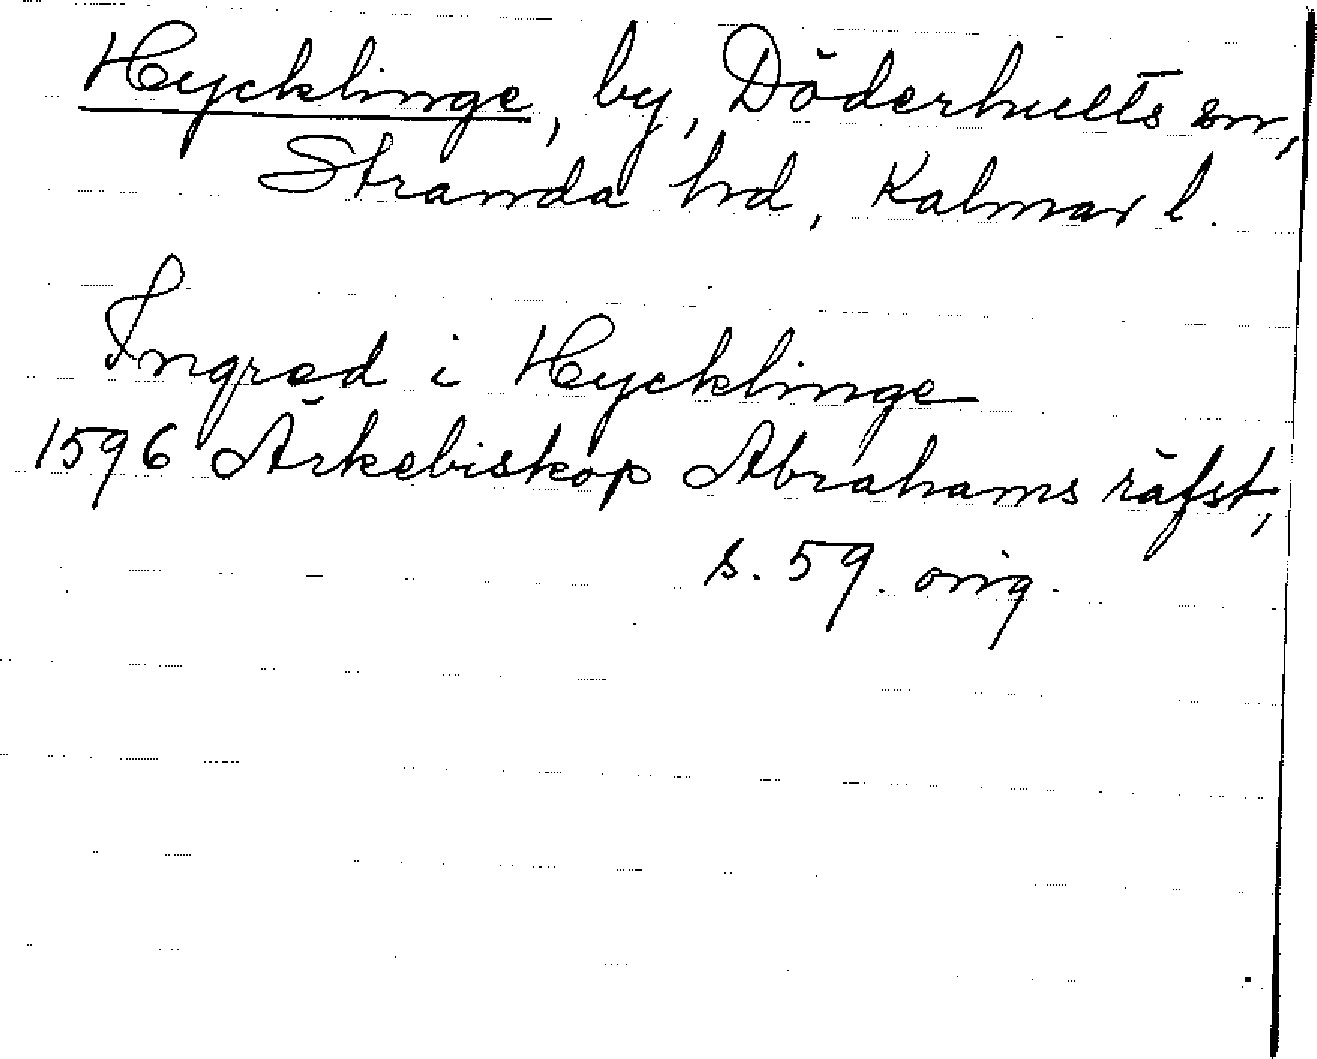 Hycklinge, by, Döderhults sn,
Stranda hd, Kalmar l.
Ingred i Hycklinge
1596 Ärkebiskop Abrahams räfst,
s. 59. orig.